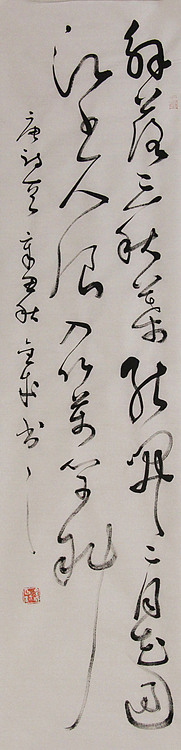 解落三秋葉能開二月花過
江千尺浪入竹萬竿斜
唐詩 辛丑秋 書